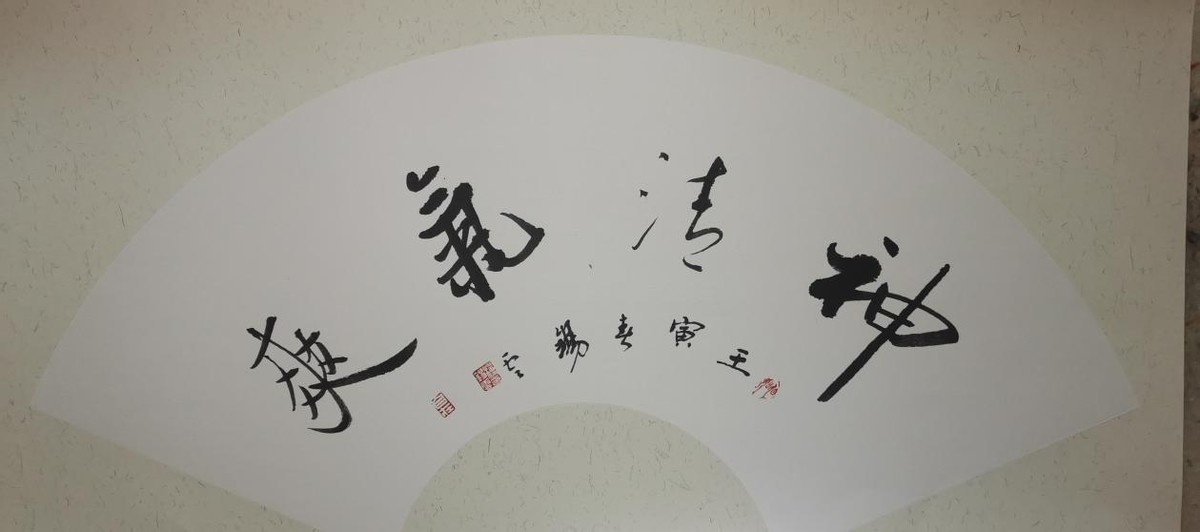 神清氣爽
壬寅春錫雲